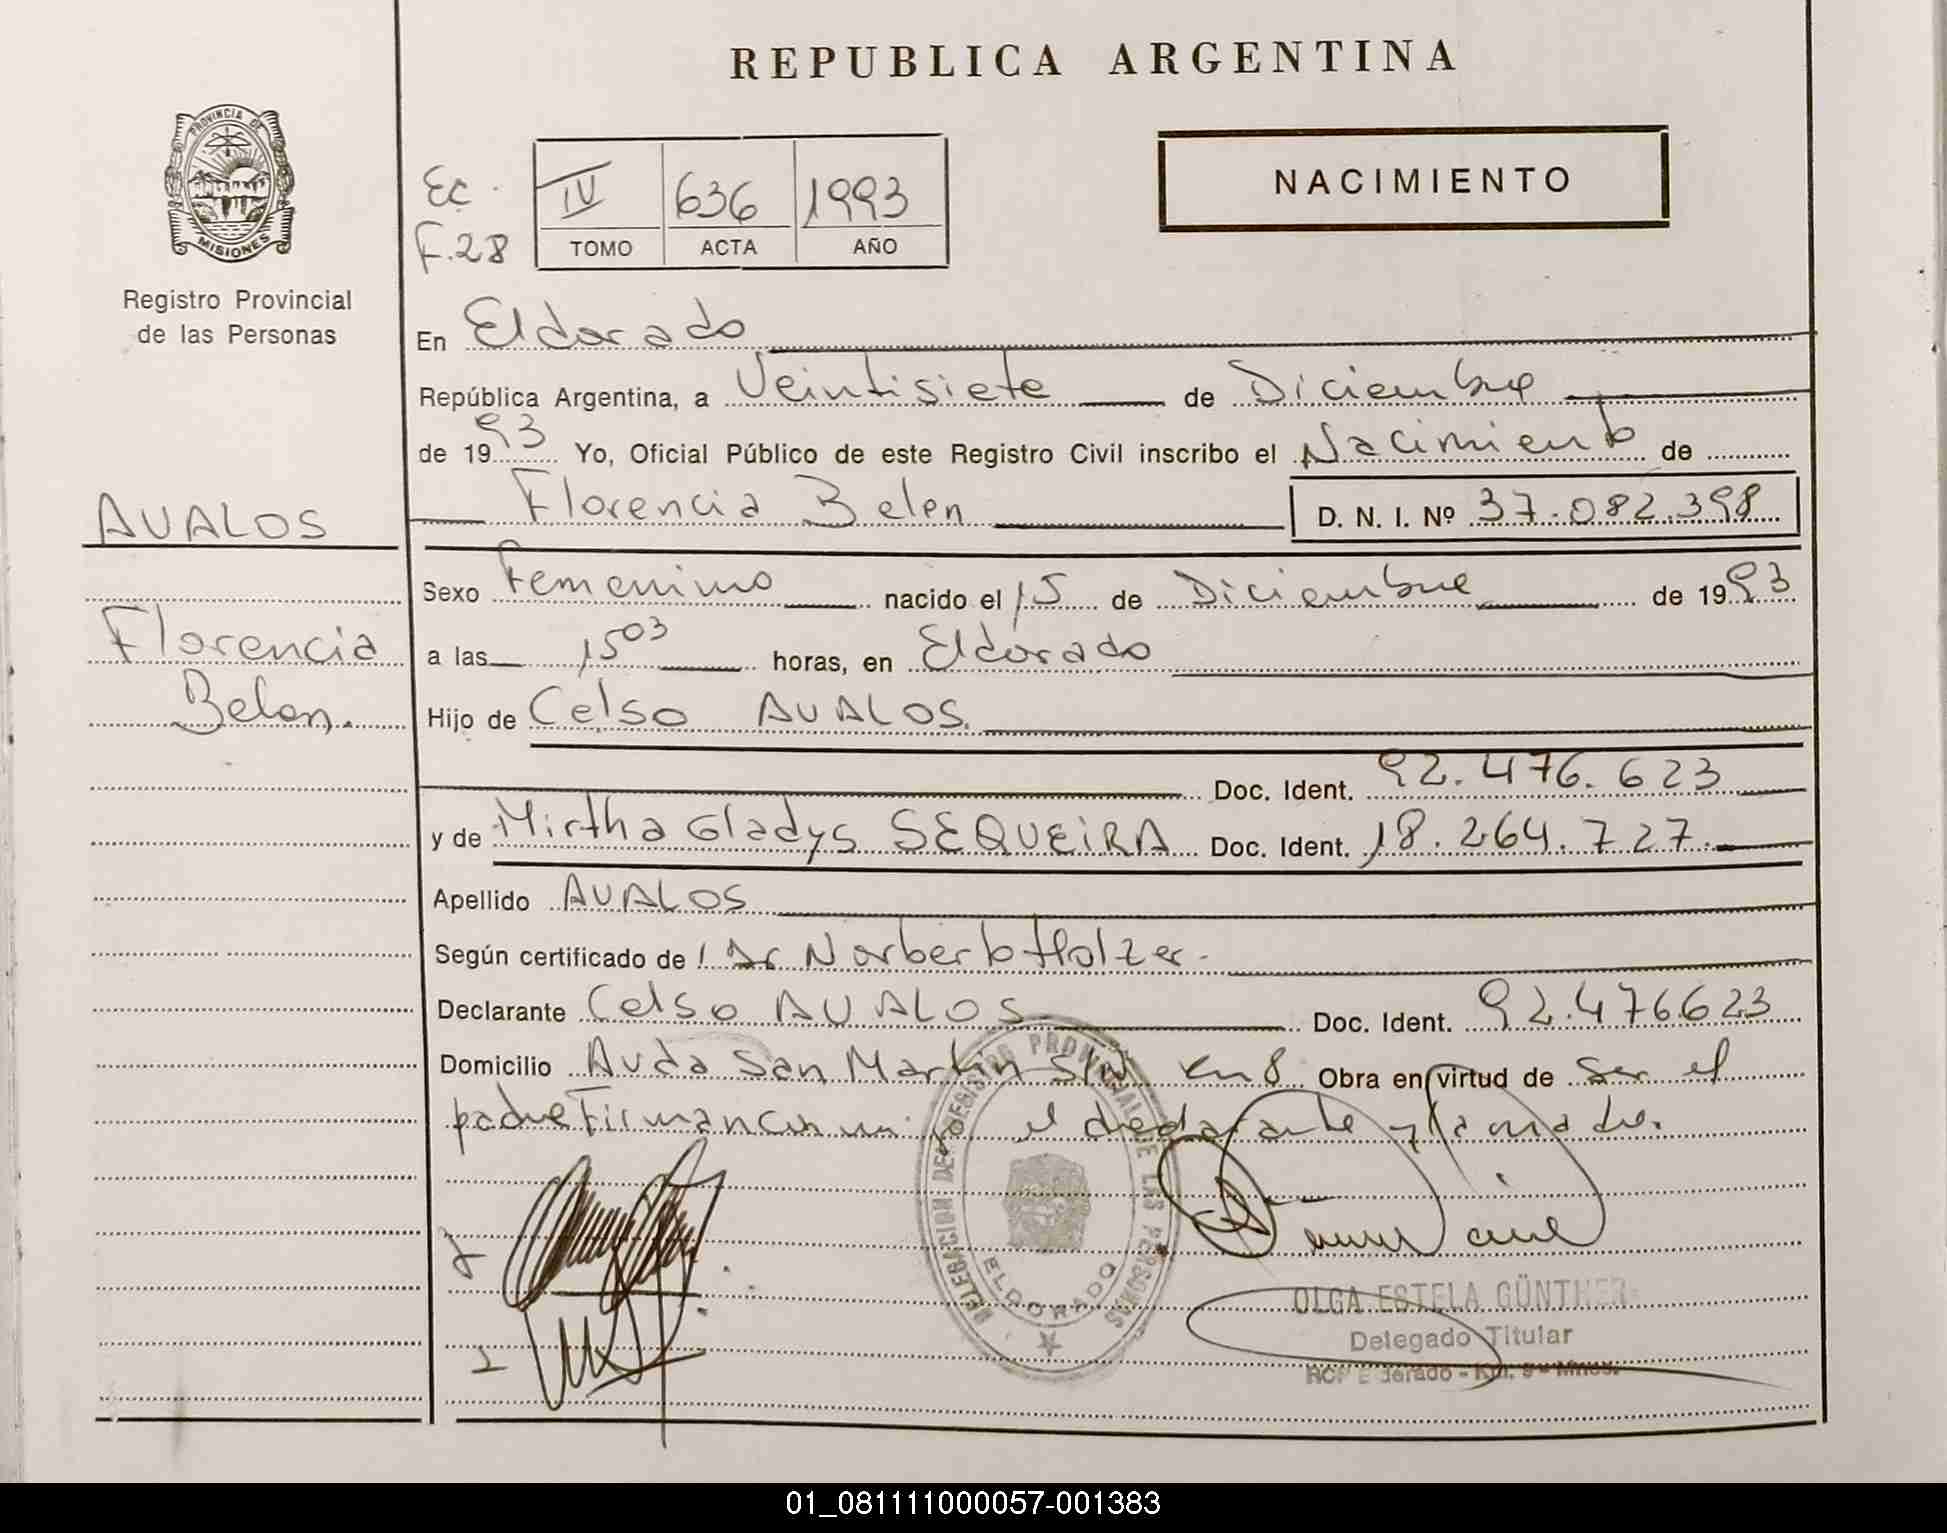 REPUBLICA ARGENTINA
PROVINCIA DE
MISIONES
Registro Provincial
de las Personas
Ec.
F.28
IV 636 1993
TOMO ACTA AÑO
NACIMIENTO
En Eldorado
República Argentina, a Veintisiete de Diciembre
de 1993 Yo, Oficial Público de este Registro Civil inscribo el Nacimiento de
Florencia Belen D. N. I. Nº 37.082.398
AVALOS
Florencia
Belen.
Sexo Femenino nacido el 15 de Diciembre de 1993
a las 15 03 horas, en Eldorado
Hijo de Celso AVALOS.
Doc. Ident. 92.476.623
y de Mirtha Gladys SEQUEIRA Doc. Ident. 18.264.727.
Apellido AVALOS
Según certificado de Dr Norberto Holzer.
Declarante Celso AVALOS Doc. Ident. 92.476623
Domicilio Avda San Martin S/N Km 8 Obra en virtud de Ser el
padre Firman el declarante y la madre.
DELEGACION DEL REGISTRO PROVINCIAL DE LAS PERSONAS
ELDORADO
OLGA ESTELA GÜNTHER
Delegado Titular
RCP Eldorado - Km. 9 - Mnes.
01_081111000057-001383